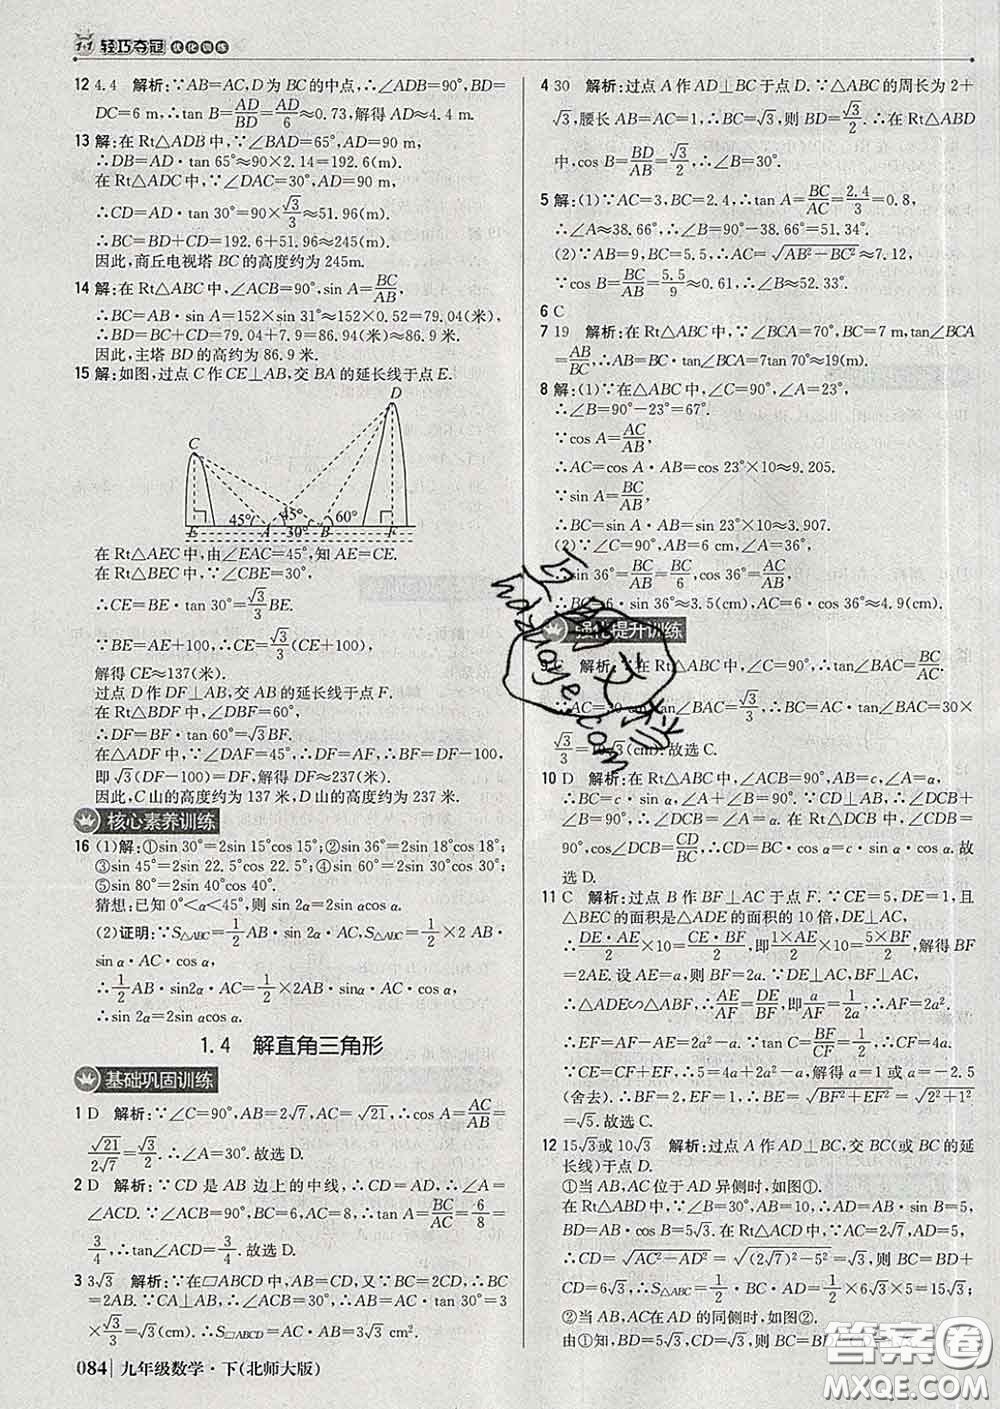 1+1 轻巧夺冠 优化训练
12 4.4 解析:∵AB=AC,D为BC的中点,∴∠ADB=90°,BD=
DC=6 m,∴tan B=AD/BD=AD/6≈0.73,解得AD≈4.4 m.
13 解:在Rt△ADB中,∵∠BAD=65°,AD=90 m,
∴DB=AD·tan 65°≈90×2.14=192.6(m).
在Rt△ADC中,∵∠DAC=30°,AD=90 m,
∴CD=AD·tan 30°=90×√3/3≈51.96(m).
∴BC=BD+CD=192.6+51.96≈245(m).
因此,商丘电视塔BC的高度约为245m.
14 解:在Rt△ABC中,∠ACB=90°,sin A=BC/AB,
∴BC=AB·sin A=152×sin 31°≈152×0.52=79.04(米).
∴BD=BC+CD=79.04+7.9=86.94≈86.9(米).
因此,主塔BD的高约为86.9米.
15 解:如图,过点C作CE⊥AB,交BA的延长线于点E.
D
C
45° 45° 60°
E A -30° B F
在Rt△AEC中,由∠EAC=45°,知AE=CE.
在Rt△BEC中,∵∠CBE=30°,
∴CE=BE·tan 30°=√3/3 BE.
∵BE=AE+100,∴CE=√3/3(CE+100),
解得CE≈137(米).
过点D作DF⊥AB,交AB的延长线于点F.
在Rt△BDF中,∠DBF=60°,
∴DF=BF·tan 60°=√3BF.
在△ADF中,∵∠DAF=45°,∴DF=AF=BF+100,
即√3(DF-100)=DF,解得DF≈237(米).
因此,C山的高度约为137米,D山的高度约为237米.
核心素养训练
16 (1)解:①sin 30°=2sin 15°cos 15°;②sin 36°=2sin 18°cos 18°;
③sin 45°=2sin 22.5°cos 22.5°;④sin 60°=2sin 30°cos 30°;
⑤sin 80°=2sin 40°cos 40°.
猜想:已知0°<α<45°,则sin 2α=2sin αcos α.
(2)证明:∵S△ABC=1/2 AB·sin 2α·AC,S△ABC=1/2×2 AB·
sin α·AC·cos α,
∴1/2 AB·sin2α·AC=1/2×2AB·sin α·AC·cos α,
∴sin 2α=2sin αcos α.
1.4 解直角三角形
基础巩固训练
1 D 解析:∵∠C=90°,AB=2√7,AC=√21,∴cos A=AC/AB=
√21/2√7=√3/2,∴∠A=30°.故选D.
2 D 解析:∵CD是AB边上的中线,∴CD=AD,∴∠A=
∠ACD.∵∠ACB=90°,BC=6,AC=8,∴tan A=BC/AC=6/8=
3/4,∴tan∠ACD=3/4.故选D.
3 3√3 解析:∵在▱ABCD中,AB=CD,又∵BC=2CD,∴BC
=2AB.∵CA⊥AB,∴∠ACB=30°,∴AB=AC·tan 30°=3
×√3/3=√3(cm).∴S▱ABCD=AB·AC=3√3 cm².
4 30 解析:过点A作AD⊥BC于点D.∵△ABC的周长为2+
√3,腰长AB=AC=1,∴BC=√3,则BD=√3/2.∴在Rt△ABD
中,cos B=BD/AB=√3/2,∴∠B=30°.
5 解:(1)∵AC=3,BC=2.4,∴tan A=BC/AC=2.4/3=0.8,
∴∠A≈38.66°,∴∠B=90°-38.66°=51.34°.
(2)∵AB=9,BC=5.5,∴AC=√AB²-BC²≈7.12,
∵cos B=BC/AB=5.5/9≈0.61,∴∠B≈52.33°.
6 C
7 19 解析:在Rt△ABC中,∵∠BCA=70°,BC=7 m,tan∠BCA
=AB/BC,∴AB=BC·tan∠BCA=7tan 70°≈19(m).
8 解:(1)∵在△ABC中,∠C=90°,∠A=23°,
∴∠B=90°-23°=67°.
∵cos A=AC/AB,
∴AC=cos A·AB=cos 23°×10≈9.205.
∵sin A=BC/AB,
∴BC=sin A·AB=sin 23°×10≈3.907.
(2)∵∠C=90°,AB=6 cm,∠A=36°,
∴sin 36°=BC/AB=BC/6,cos 36°=AC/AB=AC/6,
∴BC=6·sin 36°≈3.5(cm),AC=6·cos 36°≈4.9(cm).
强化提升训练
解析:∵在Rt△ABC中,∠C=90°,∴tan∠BAC=BC/AC.
∵AC=30 cm,tan∠BAC=√3/3,∴BC=AC·tan∠BAC=30×
√3/3=10√3(cm).故选C.
10 D 解析:在Rt△ABC中,∠ACB=90°,AB=c,∠A=α,
∴BC=c·sin α,∠A+∠B=90°.∵CD⊥AB,∴∠DCB+
∠B=90°,∴∠DCB=∠A=α.在Rt△DCB中,∠CDB=
90°,cos∠DCB=CD/BC,∴CD=BC·cos α=c·sin α·cos α.故
选D.
11 C 解析:过点B作BF⊥AC于点F.∵CE=5,DE=1,且
△BEC的面积是△ADE的面积的10倍,DE⊥AC,
∴DE·AE/2×10=CE·BF/2,即1×AE/2×10=5×BF/2,解得BF
=2AE.设AE=a,则BF=2a.∵DE⊥AC,BF⊥AC,
∴△ADE∽△ABF,∴AE/AF=DE/BF,即a/AF=1/2a,∴AF=2a².
∴EF=AF-AE=2a²-a.∵tan C=BF/CF=1/2,∴CF=4a.
∵CE=CF+EF,∴5=4a+2a²-a,解得a=1或a=-2.5
(舍去).∴BF=2,EF=1,∴BE=√BF²+EF²=√2²+1²
=√5.故选C.
12 15√3或10√3 解析:过点A作AD⊥BC,交BC(或BC的延
长线)于点D.
①当AB,AC位于AD异侧时,如图①.
在Rt△ABD中,∵∠B=30°,AB=10,∴AD=AB·sin B=5,
BD=AB·cos B=5√3.在Rt△ACD中,∵AC=2√7,AD=5,
∴CD=√AC²-AD²=√(2√7)²-5²=√3,则BC=BD+CD
=6√3,∴S△ABC=1/2·BC·AD=1/2×6√3×5=15√3;
②当AB,AC在AD的同侧时,如图②.
由①知,BD=5√3,CD=√3,则BC=BD-CD=4√3,
084 九年级数学·下(北师大版)
hezuoye.com
答案圈
MXQE.COM